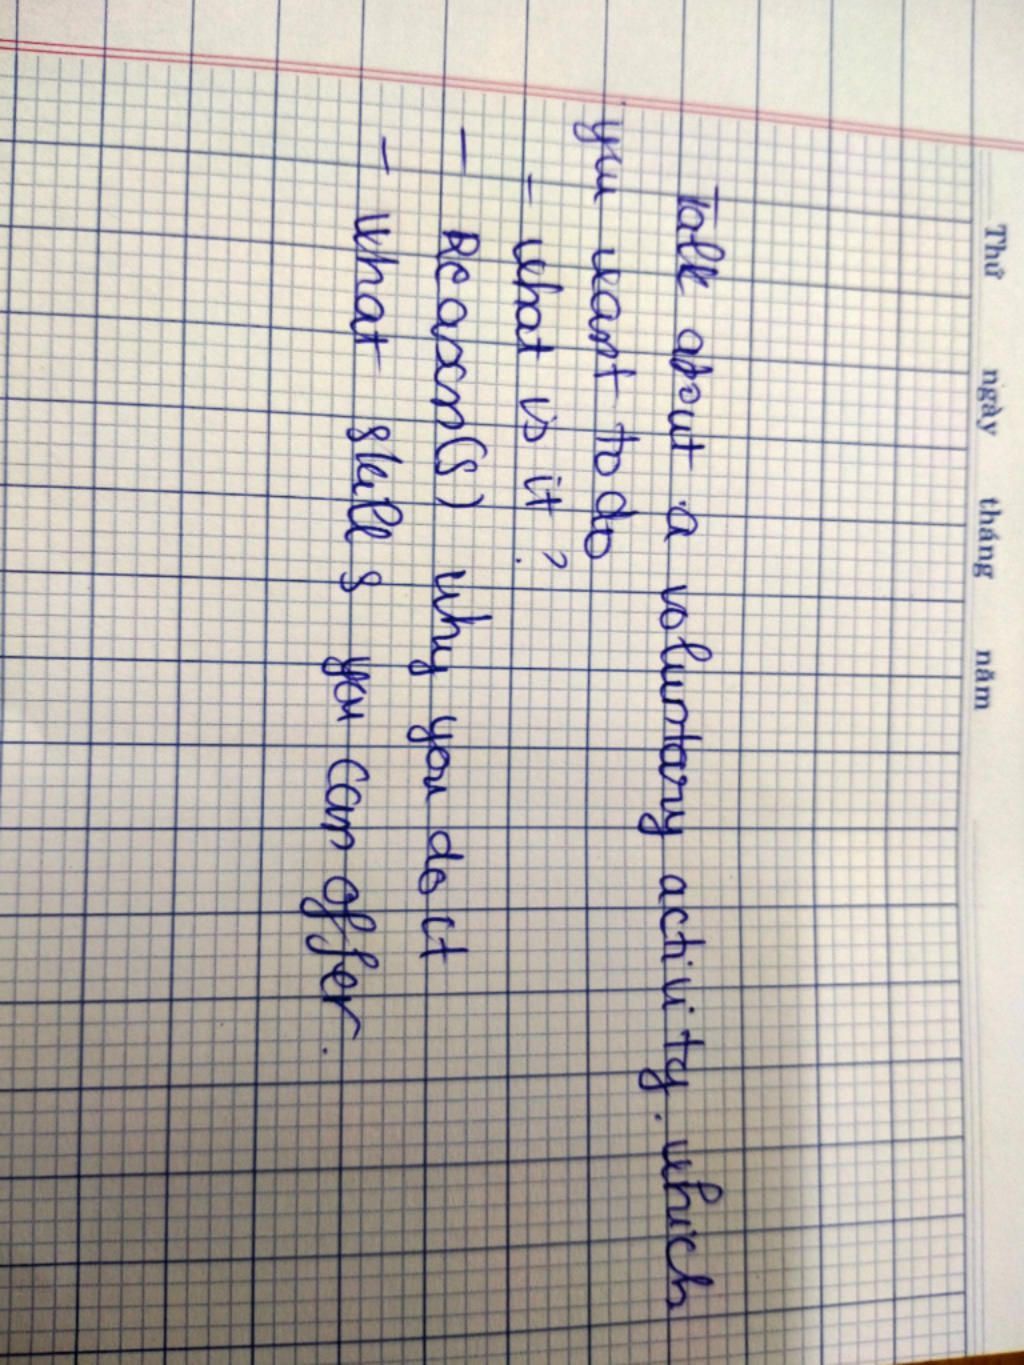 Thứ ngày tháng năm
Talk about a voluntary activity. which
you want to do
- what is it?
- Reason(s) why you do it
- what skills you can offer.